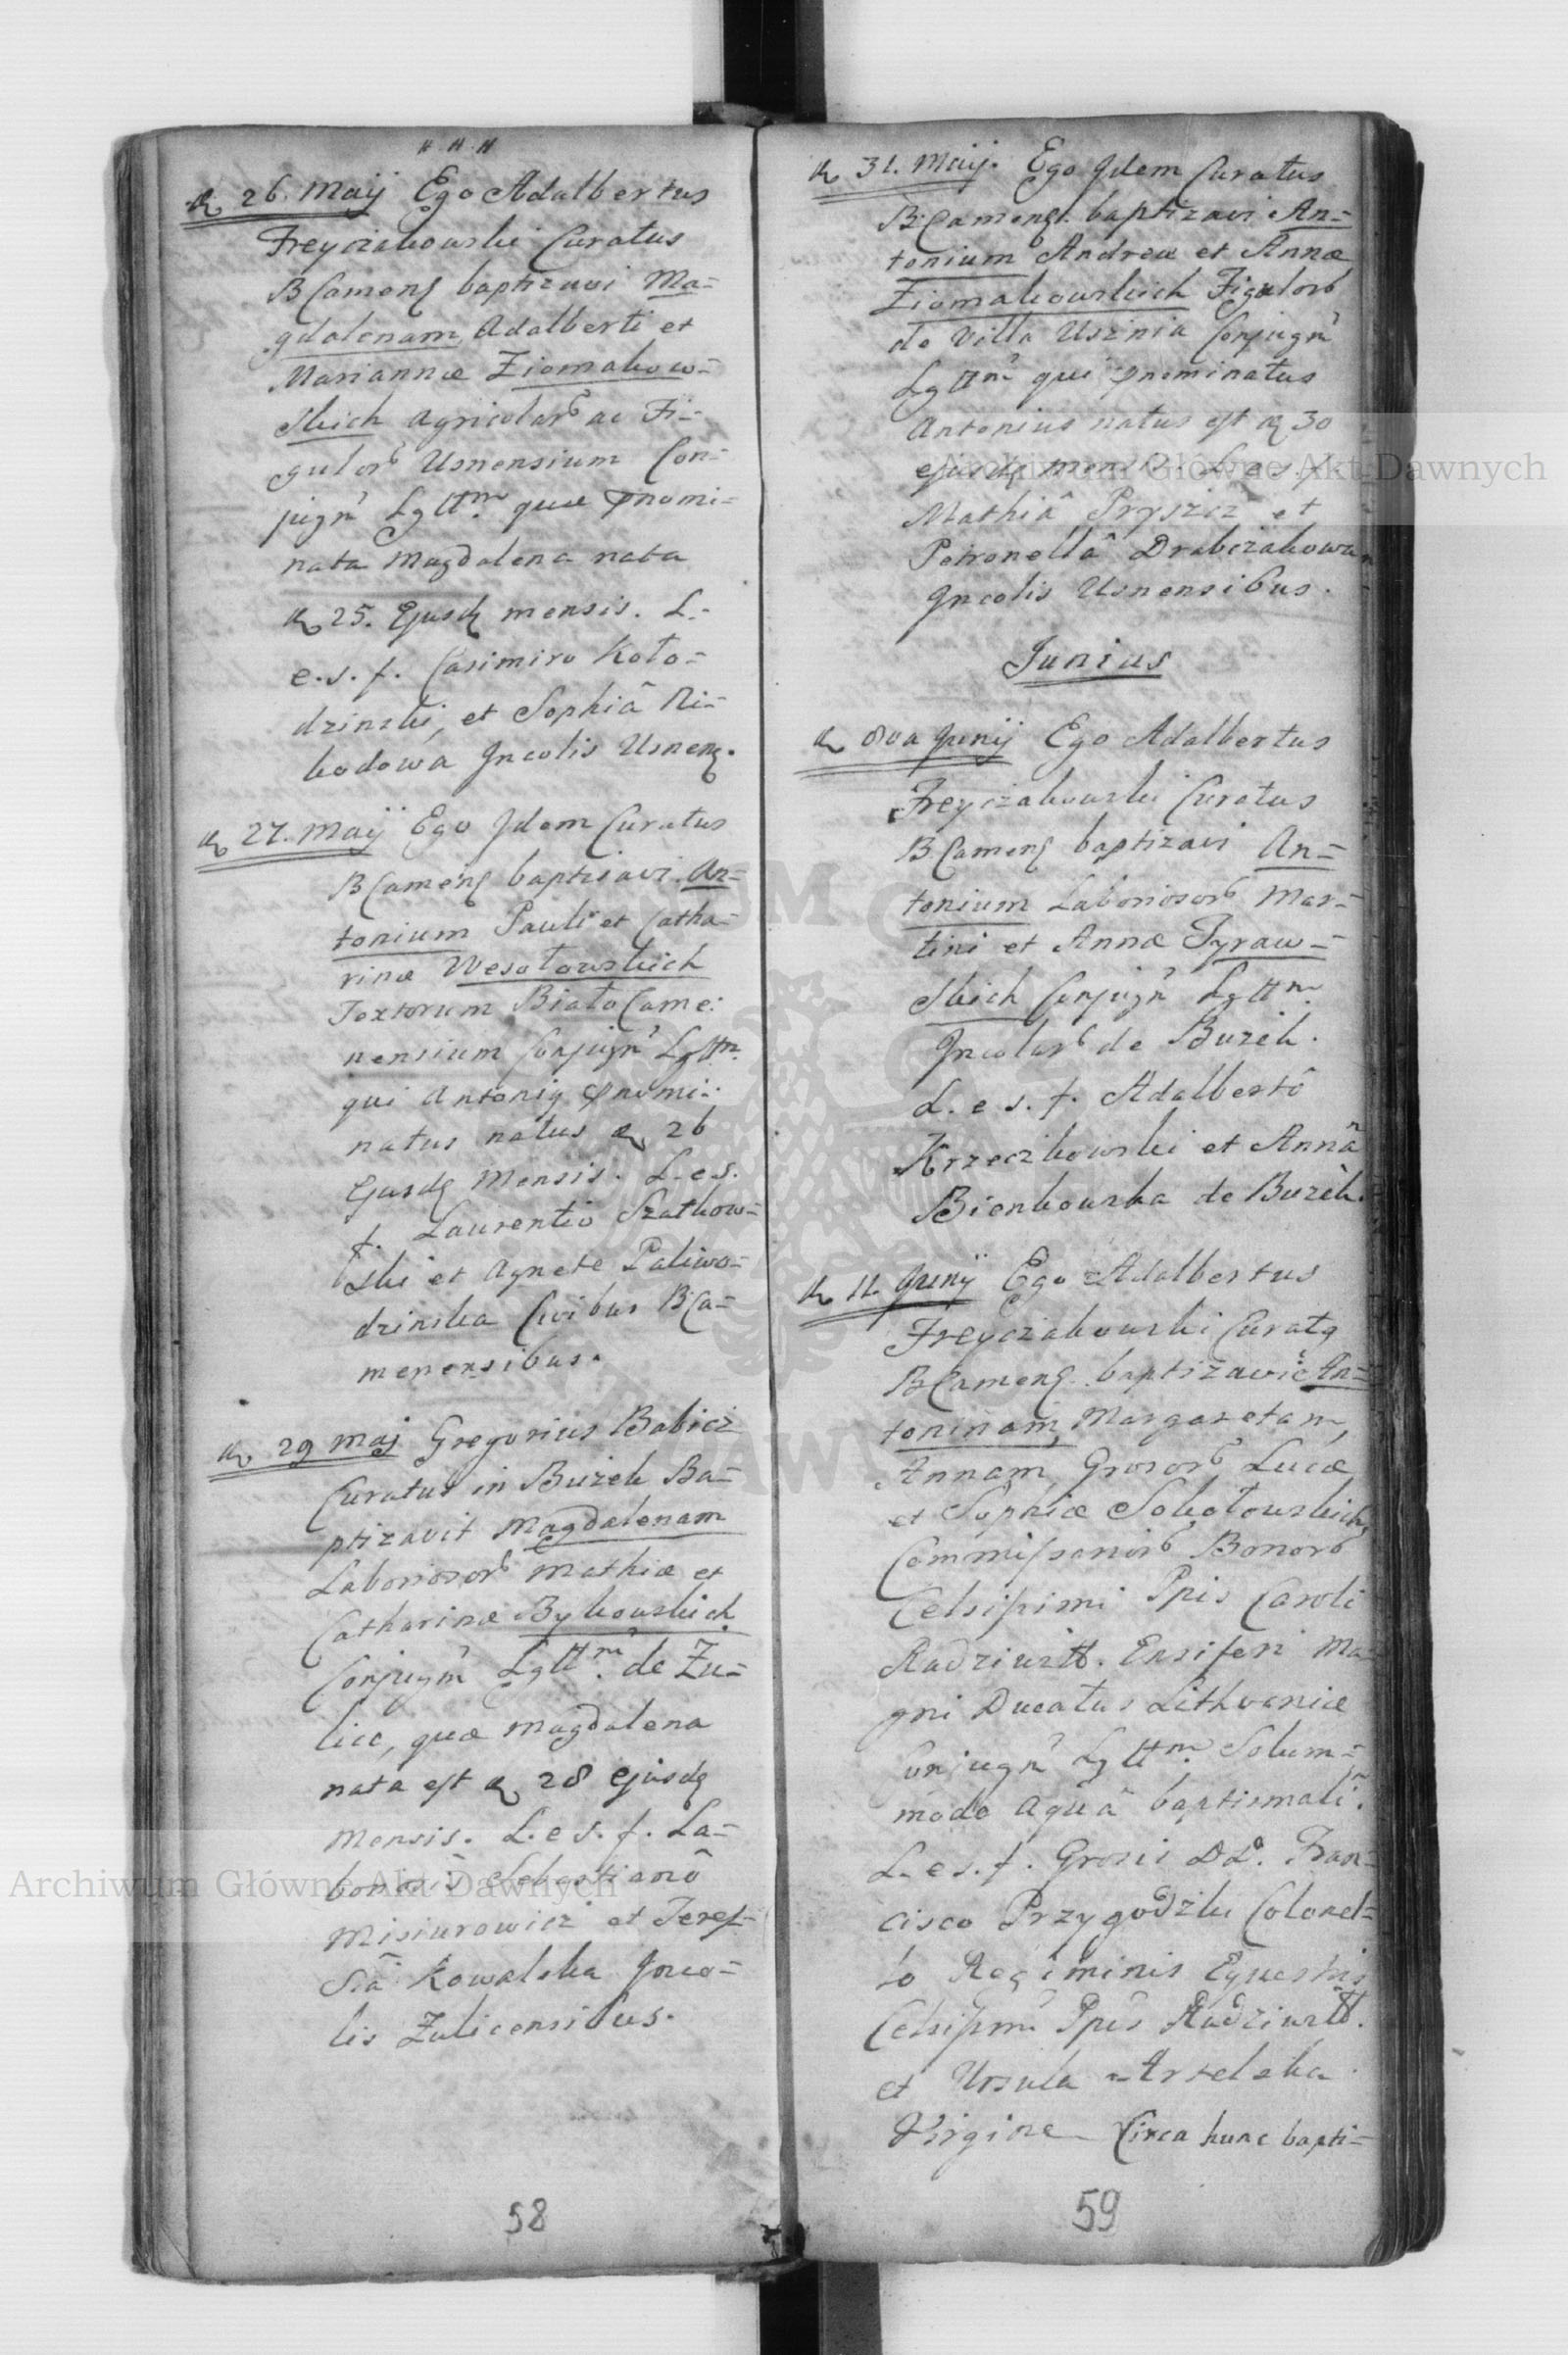 26. Maij Ego Adalbertus
Freyczakowski Curatus
BCamenę baptizavi Ma=
gdalenam Adalberti et
Mariannæ Ziomakow=
skich Agricolar ac Fi=
gulor Usnensium Con=
jugm Lgttm. quæ pnomi=
nata Magdalena nata
25. Ejusdę mensis. L.
e. s. f. Casimiro Koło=
dzinski, et Sophiâ Ri=
kodowa Jncolis Usnenę.
27. Maij Ego Jdem Curatus
BCamenę baptisavi An=
tonium Pauli et Catha=
rinæ Wesołowskich
Textorum Biało Came:
nensium Conjugm Lgttm.
qui Antonig pnomi:
natus natus 26
Ejusdę Mensis. L. e s.
f. Laurentio Szatkow=
ski et Agnete Paliwo=
dzinska Civibus BCa=
menensibus.
29 Maj Gregorius Babicz
Curatus in Bużek Ba=
ptizavit Magdalenam
Laboriosor Mathiæ et
Catharinæ Bykowskich
Conjugm Lgttm. de Zu=
lice, quæ Magdalena
nata est 28 ejusdę
Mensis. L. e s. f. La=
Sebastianô
Misiurowicz et Teres=
siâ Kowalska Jnco=
lis Zulicensibus.
58
31. Maij. Ego Jdem Curatus
BCamenę. baptizavi An=
tonium Andreæ et Annæ
Ziomakowskich Figulor
de Villa Usznia Conjugm
Lgttm qui pnominatus
Antonius natus est 30
ejusdę mensis. L. e s. f.
Mathiâ Pryszcz et
Petronellâ Drabczakowa
Jncolis Usnensibus.
Junius
8va Junij Ego Adalbertus
Freyczakowski Curatus
BCamenę baptizavi An=
tonium Laboriosor Mar=
tini et Annæ Tyraw=
skich Conjugm Lgttm.
Jncolar de Bużek.
L. e s. f. Adalbertô
Krzeczkowski et Annâ
Bienkowska de Bużek.
11. Junij Ego Adalbertus
Freyczakowski Curatg
BCamenę baptizavi An=
toninam, Margaretam,
Annam, Grosor Lucæ
et Sophiæ Sokołowskich,
Commissarior Bonor
Celsissimi Ppis Caroli
Radziwiłł. Ensiferi Ma=
gni Ducatus Lithvaniæ
Conjugm Lgttm. Solum=
modo Aquâ baptismali.
L. e s. f. Grosis DD. Fran=
cisco Przygodzki Colonel=
lo Regiminis Equestris
Celsissmi Ppis Radziwiłł.
et Ursula Artelska
Virgine Circa hunc bapti=
59
Archiwum Główne Akt Dawnych
Archiwum Główne Akt Dawnych